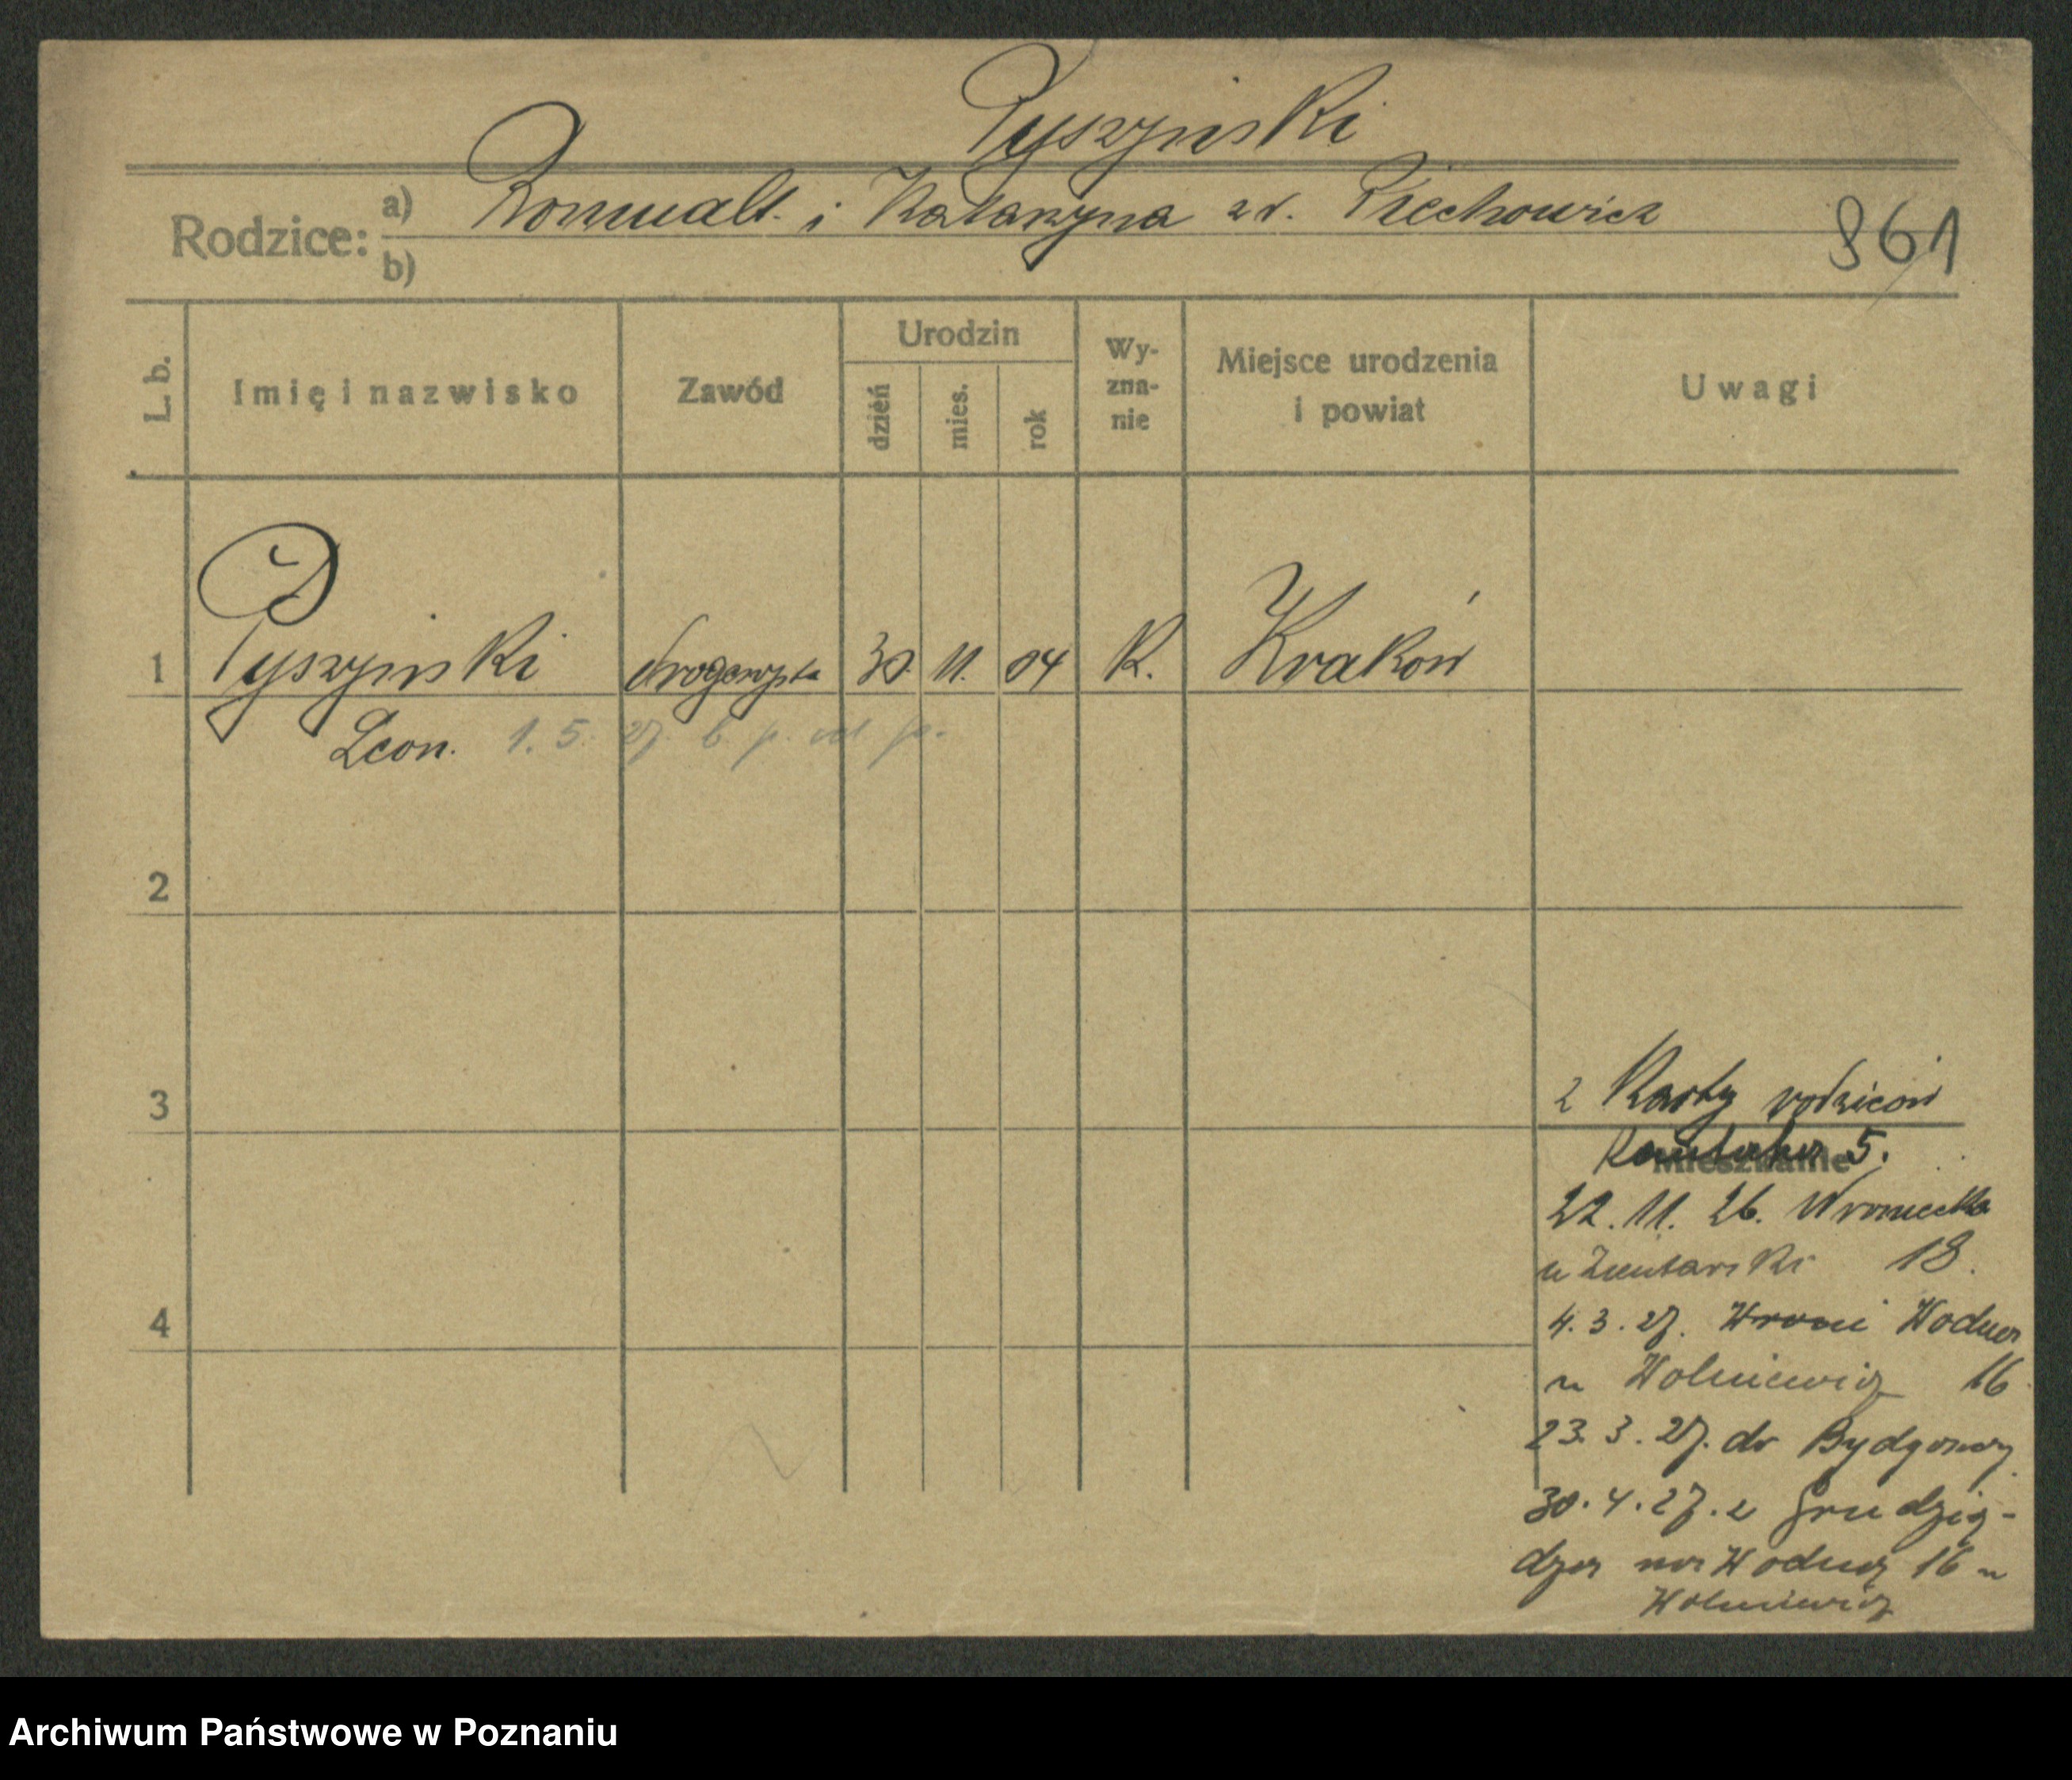 Pyszyński
Rodzice: a) Romuald. i Katarzyna zd. Piechowicz
b)
861
L. b.
Imię i nazwisko
Zawód
Urodzin
dzień
mies.
rok
Wy-
zna-
nie
Miejsce urodzenia
i powiat
Uwagi
1 Pyszyński drogerzysta 30. 11. 04 K. Kraków
Leon. 1. 5. 27. b. p. od p.
2
3
4
z Karty rodziców
Mieszkanie
5.
22. 11. 26. Wroniecka
u Zientarski 18.
4. 3. 27. Wroni Wodna
u Wolniewicz 16
23. 3. 27. do Bydgoszcz
30. 4. 27. z Grudzią-
dza na Wodną 16 u
Wolniewicz
Archiwum Państwowe w Poznaniu